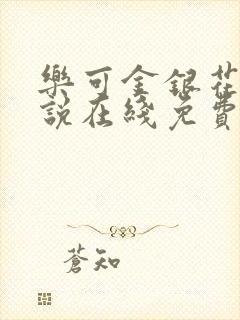 樂可金銀花
說在綫免費
蒼知